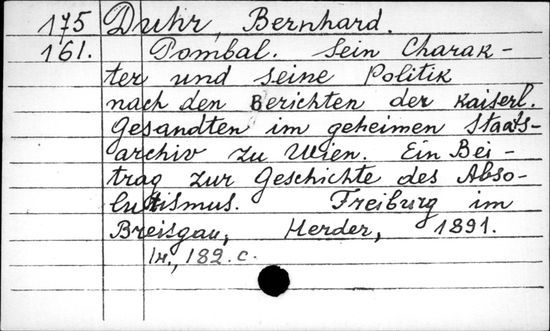 175 Duhr, Bernhard.
161. Pombal. Sein Charak-
ter und seine Politik
nach den Berichten der Kaiserl.
Gesandten im geheimen Staats-
archiv zu Wien. Ein Bei-
trag zur Geschichte des Abso-
lutismus. Freiburg im
Breisgau, Herder, 1891.
In., 182. c.